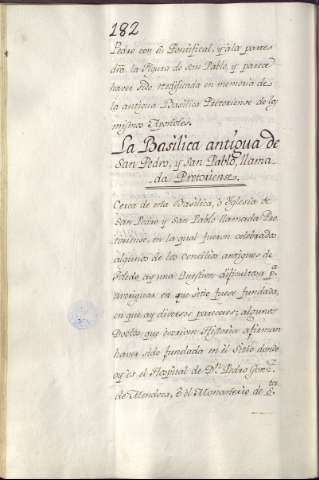 182
Pedro con el Pontifical, y á la parte
dra. la figura de San Pablo, y parece
haver sido reedificada en memoria de
la antigua Basilica Pretoriense de los
mismos Apostoles.
La Basilica antigua de
San Pedro, y San Pablo, llama
da Pretoriense.
Cerca de esta Basilica, ó Yglesia de
San Pedro y San Pablo llamada Pre
toriense, en la qual fueron celebrados
algunos de los Concilios antiguos de
Toledo, ay una question dificultosa pa.
averiguar en que sitio fuese fundada,
en que ay diversos pareceres; algunos
Doctos, que escriven Historias afirman
haver sido fundada en el Sitio donde
oy es el Hospital de Dn. Pedro Gonz.
de Mendoza, ó el Monasterio de Sta.